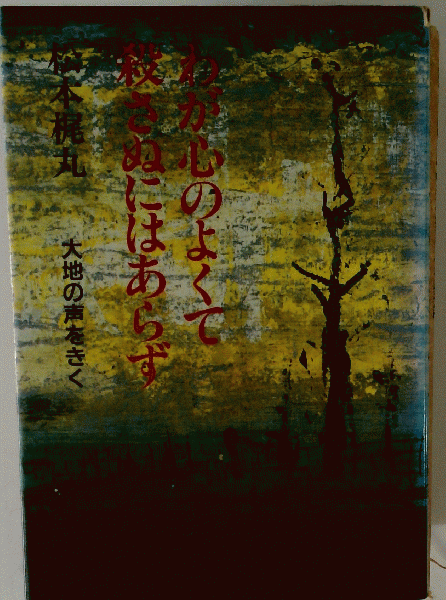 わが心のよくて
殺さぬにはあらず
大地の声をきく
本梶丸